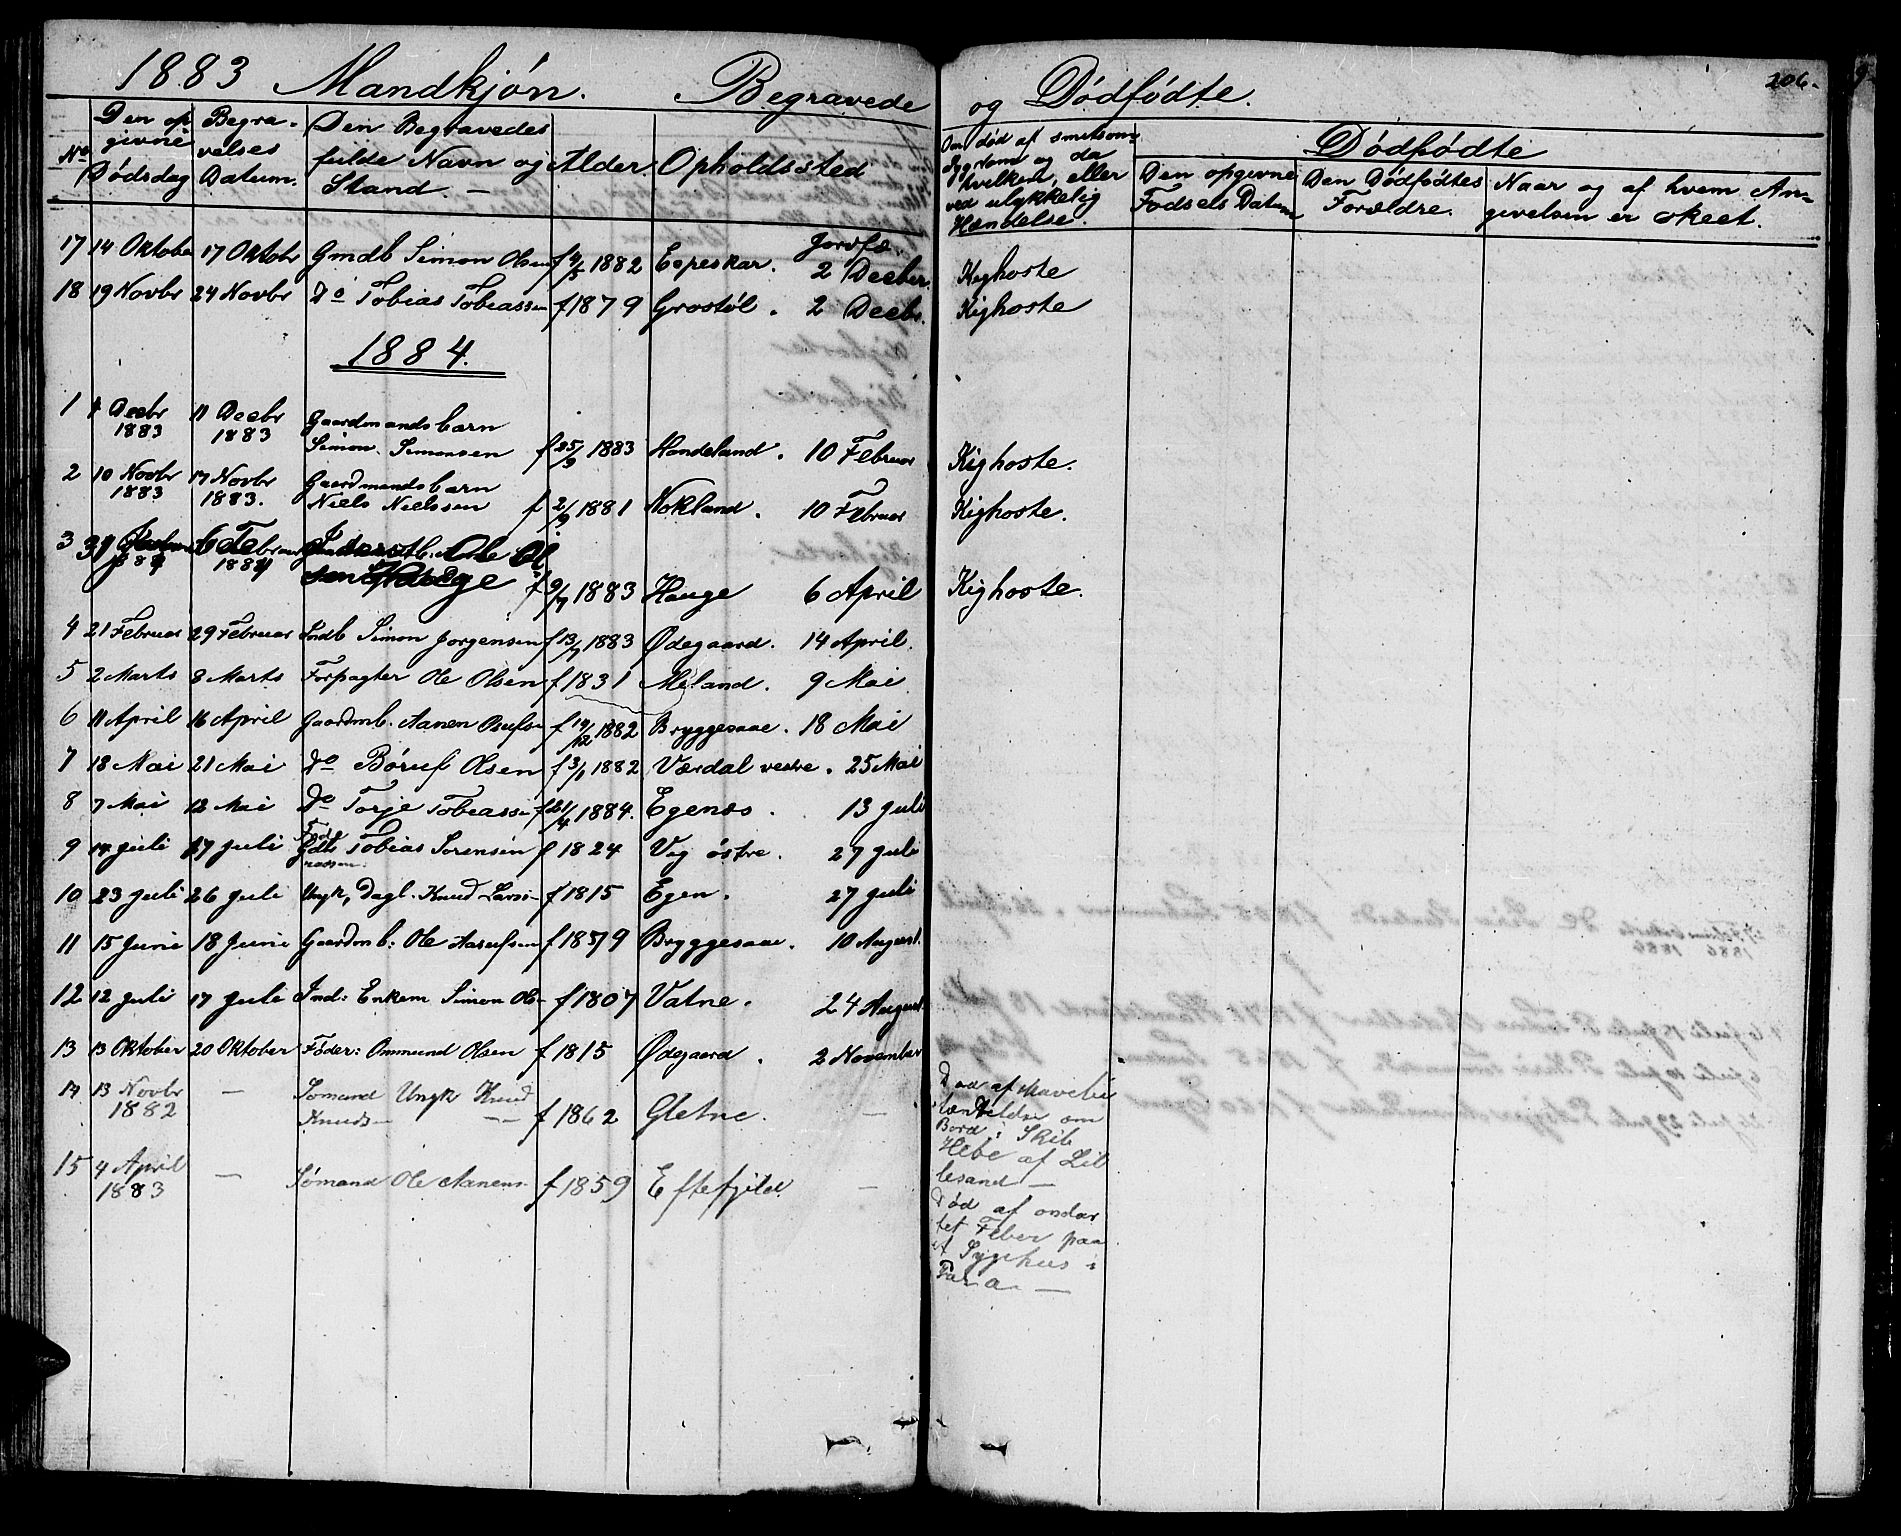 1883 Mandkjøn. Begravede og Dødfødte. 206.
No Den opgivne Dødsdag Begravelses Datum. Den Begravedes fulde Navn og Stand. Alder Opholdssted Om død af smitsom Sygdom og da hvilken, eller ved ulykkelig Hændelse. Dødfødte
Den opgivne Fødsels Datum Den Dødfødtes Forældre. Naar og af hvem Angivelsen er skeet.
17 14 Oktober 17 Oktobr Gmdb Simon Olsen f 1882 Eepeskar. Jordfæ. 2 Decber. Kighoste
18 19 Novbr 24 Novbr Do Tobias Tobiassen f 1879 Grostøl. 2 Decbr. Kighoste
1884.
1 4 Decbr 1883 11 Decbr 1883 Gaardmandsbarn Simon Simonsen f 25/9 1883 Handeland. 10 Februar Kighoste.
2 10 Novbr 1883 17 Novbr 1883. Gaardmandsbarn Niels Nielssen f 2/9 1881 Nokland. 10 Februar Kighoste.
3 31 1884 6 Februar 1884 Inderstb. Ole Olsen Hauge f 9/7 1883 Hauge 6 April Kighoste.
4 21 Februar 29 Februar Indb Simon Jørgensen f 13/7 1883 Ødegaard. 14 April.
5 2 Marts 8 Marts Forpagter Ole Olsen f 1831 Meland. 9 Mai
6 11 April 16 April Gaardmb. Aanen f 19/12 1882 Bryggesaae. 18 Mai
7 18 Mai 21 Mai Do Børuf Olsen f 3/1 1882 Værdal vestre. 25 Mai
8 7 Mai 12 Mai Do Torje Tobiass f 21/4 1884. Egenæs. 13 Juli
9 14 Juli 17 Juli Føde Gdb Tobias Sørensen f 1824 Veg østre. 27 Juli
10 23 Juli 26 Juli Ungk, Dagl. Knud Larss f 1815 Egen. 27 Juli
11 15 Juni 18 Juni Gaardmb: Ole Aasufsen f 1879 Bryggesaae. 10 August.
12 12 Juli 17 Juli Ind: Enkem Simon Ols f 1807 Vatne. 24 August
13 13 Oktober 20 Oktober Føder: Ommund Olsen f 1815 Ødegaard. 2 November
14 13 Novbr 1882 — Sømand Ungk Knud Knuds — f 1862 Gletne. — Død af Mavebetændelse om Bord i Skib Hebe af Lillesand —
15 4 April 1883 — Sømand Ole Aanens f 1859 Eftefjeld. — Død af ondartet Feber paa et Sygehus i Para —